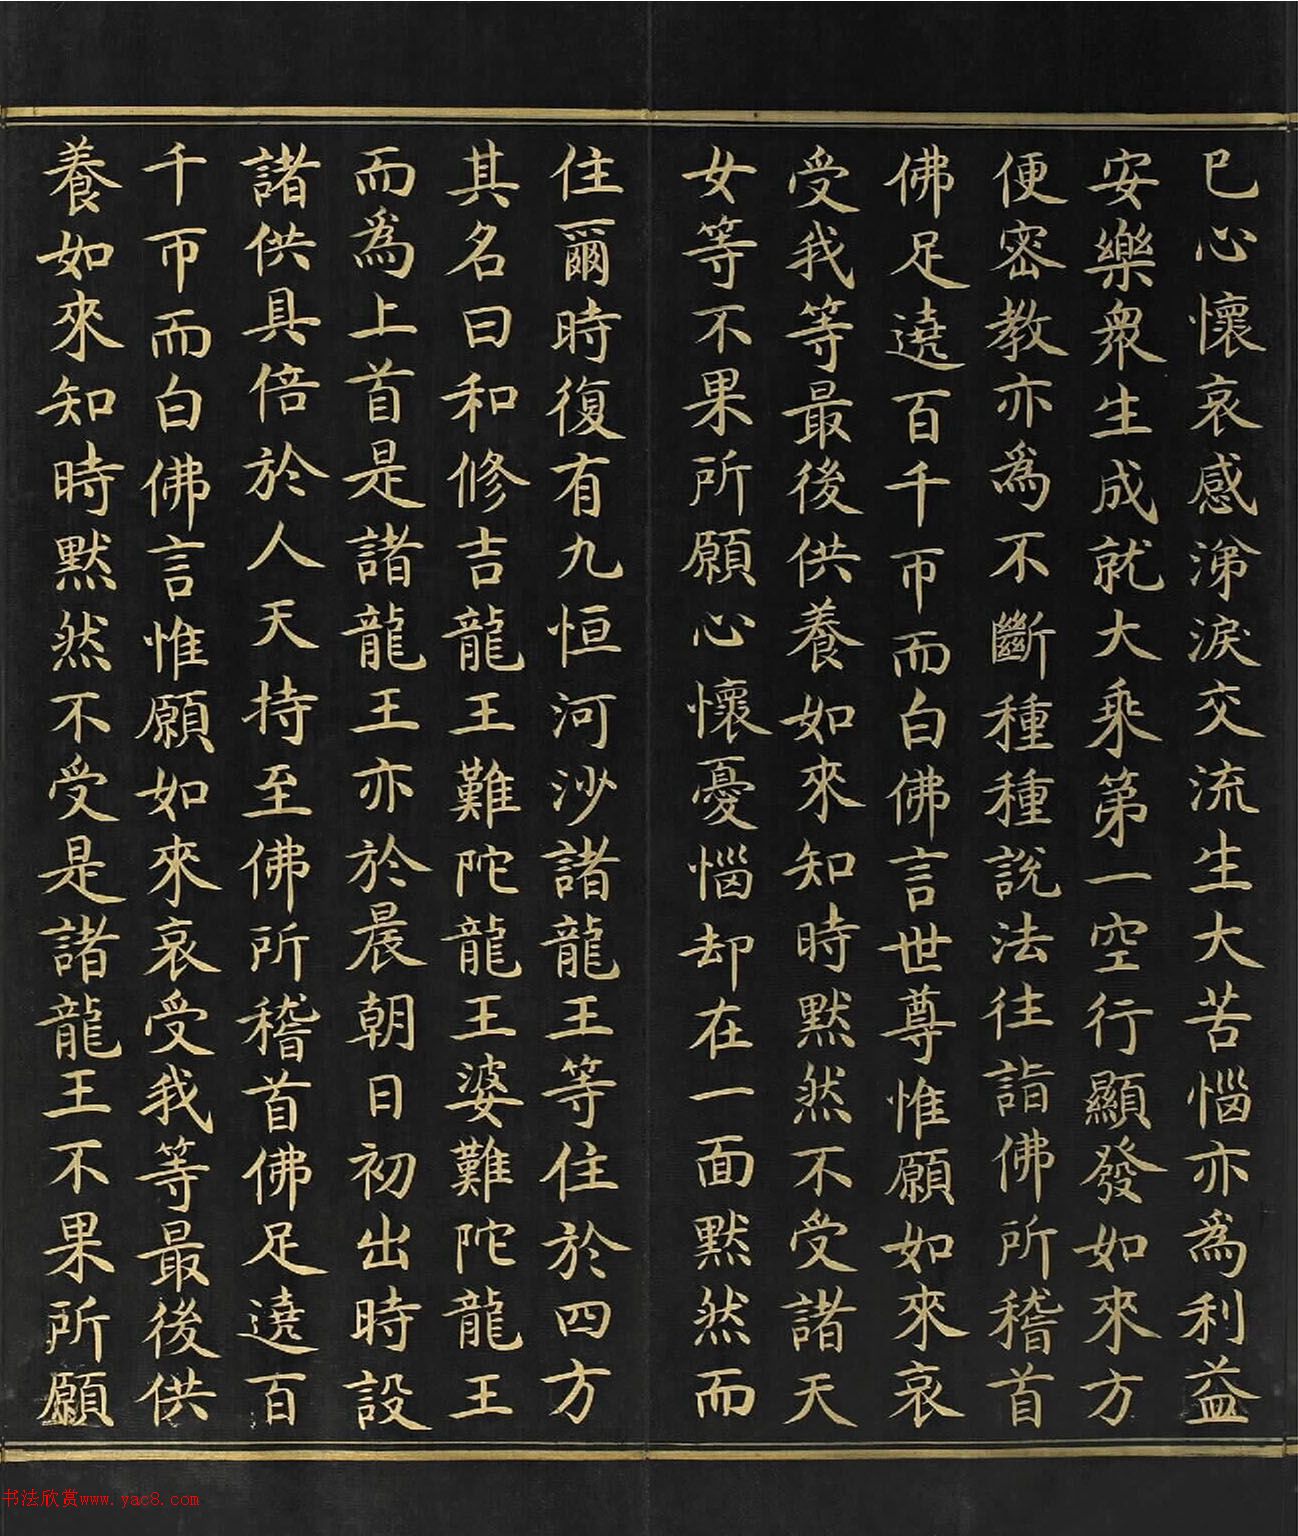 已心懷哀感涕淚交流生大苦惱亦為利益
安樂衆生成就大乘第一空行顯發如來方
便密教亦為不斷種種說法往詣佛所稽首
佛足遶百千帀而白佛言世尊惟願如來哀
受我等最後供養如來知時默然不受諸天
女等不果所願心懷憂惱却在一面默然而
住爾時復有九恒河沙諸龍王等住於四方
其名曰和修吉龍王難陀龍王婆難陀龍王
而為上首是諸龍王亦於晨朝日初出時設
諸供具倍於人天持至佛所稽首佛足遶百
千帀而白佛言惟願如來哀受我等最後供
養如來知時默然不受是諸龍王不果所願
书法欣赏www.yac8.com